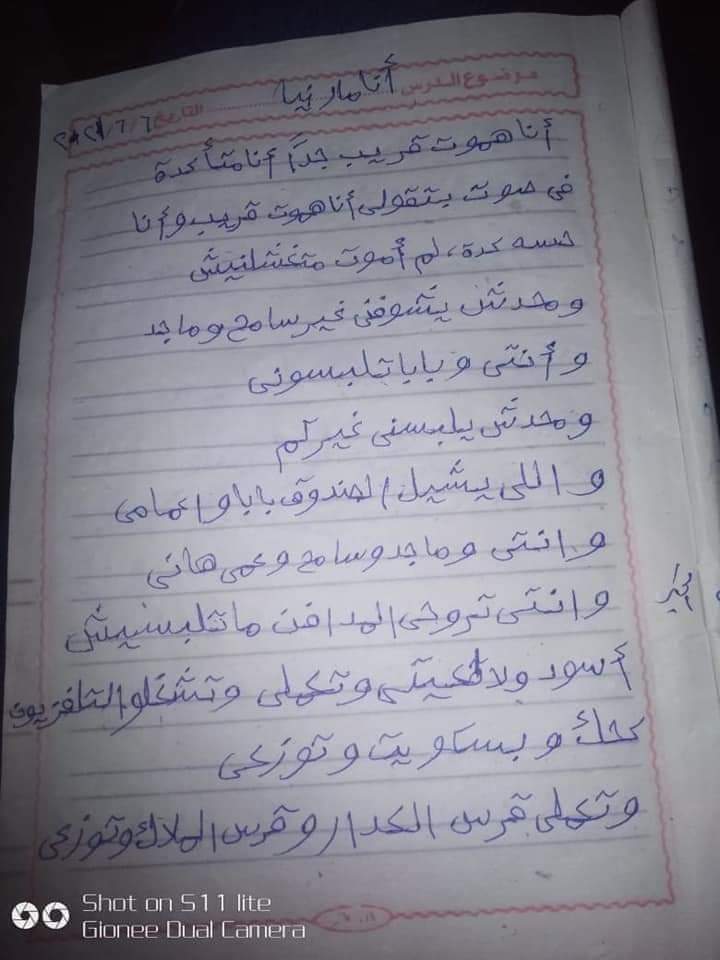 موضوع الدرس أنا مارينا
التاريخ ٢٠٢١/٦/٦
أنا هموت قريب جدًا أنا متأكدة
فى صوت بتقولى أنا هموت قريب وأنا
حسه كدة، لم أموت متغسلنيش
ومحدش يشوفنى غير سامح وماجد
وأنتى وبابا تلبسونى
ومحدش يلبسنى غيركم
واللى يشيل الصندوق بابا واعمامى
وانتى وماجد وسامح وعمى هانى
وانتى تروحى المدافن ماتلبسيش
أسود ولا تعيتى وتعملى وتشغلو التلفزيون
كحك وبسكويت وتوزعى
وتعملى قرس الكدار وقرس الملاك وتوزعى
Shot on S11 lite
Gionee Dual Camera